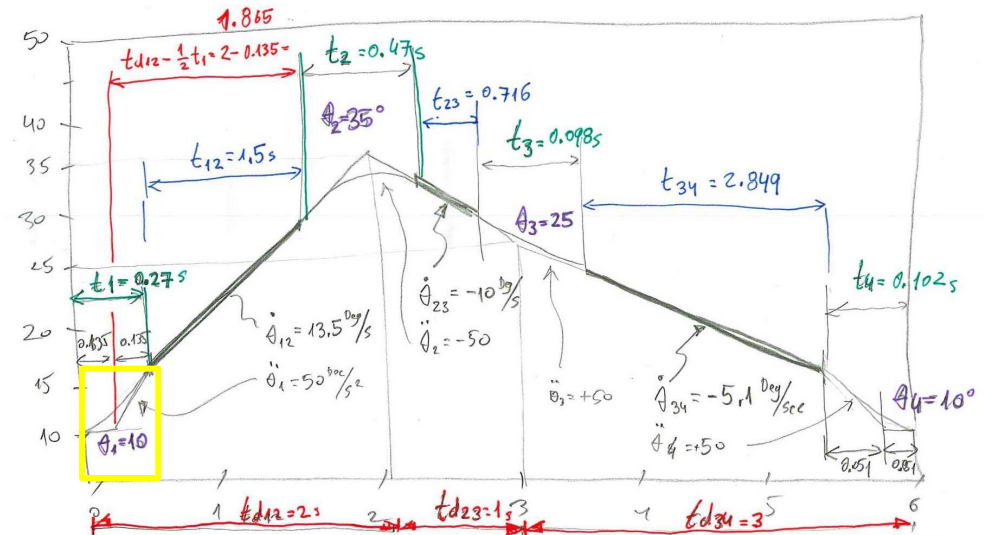 1.865
50
td12 - ½t1 = 2 - 0.135 =
t2 = 0.47s
θ2 = 35°
t23 = 0.716
40
t3 = 0.098s
t12 = 1.5s
35
t34 = 2.849
30
θ3 = 25
25
t1 = 0.27s
t4 = 0.102s
θ̇23 = -10 Deg/s
20
0.135
0.135
θ̇12 = 13.5 Deg/s
θ̈2 = -50
15
θ̈1 = 50 Deg/s²
θ̈3 = +50
θ̇34 = -5.1 Deg/sec
θ4 = 10°
10
θ1 = 10
θ̈4 = +50
0.051
0.051
0
1
2
3
4
5
6
td12 = 2s
td23 = 1s
td34 = 3